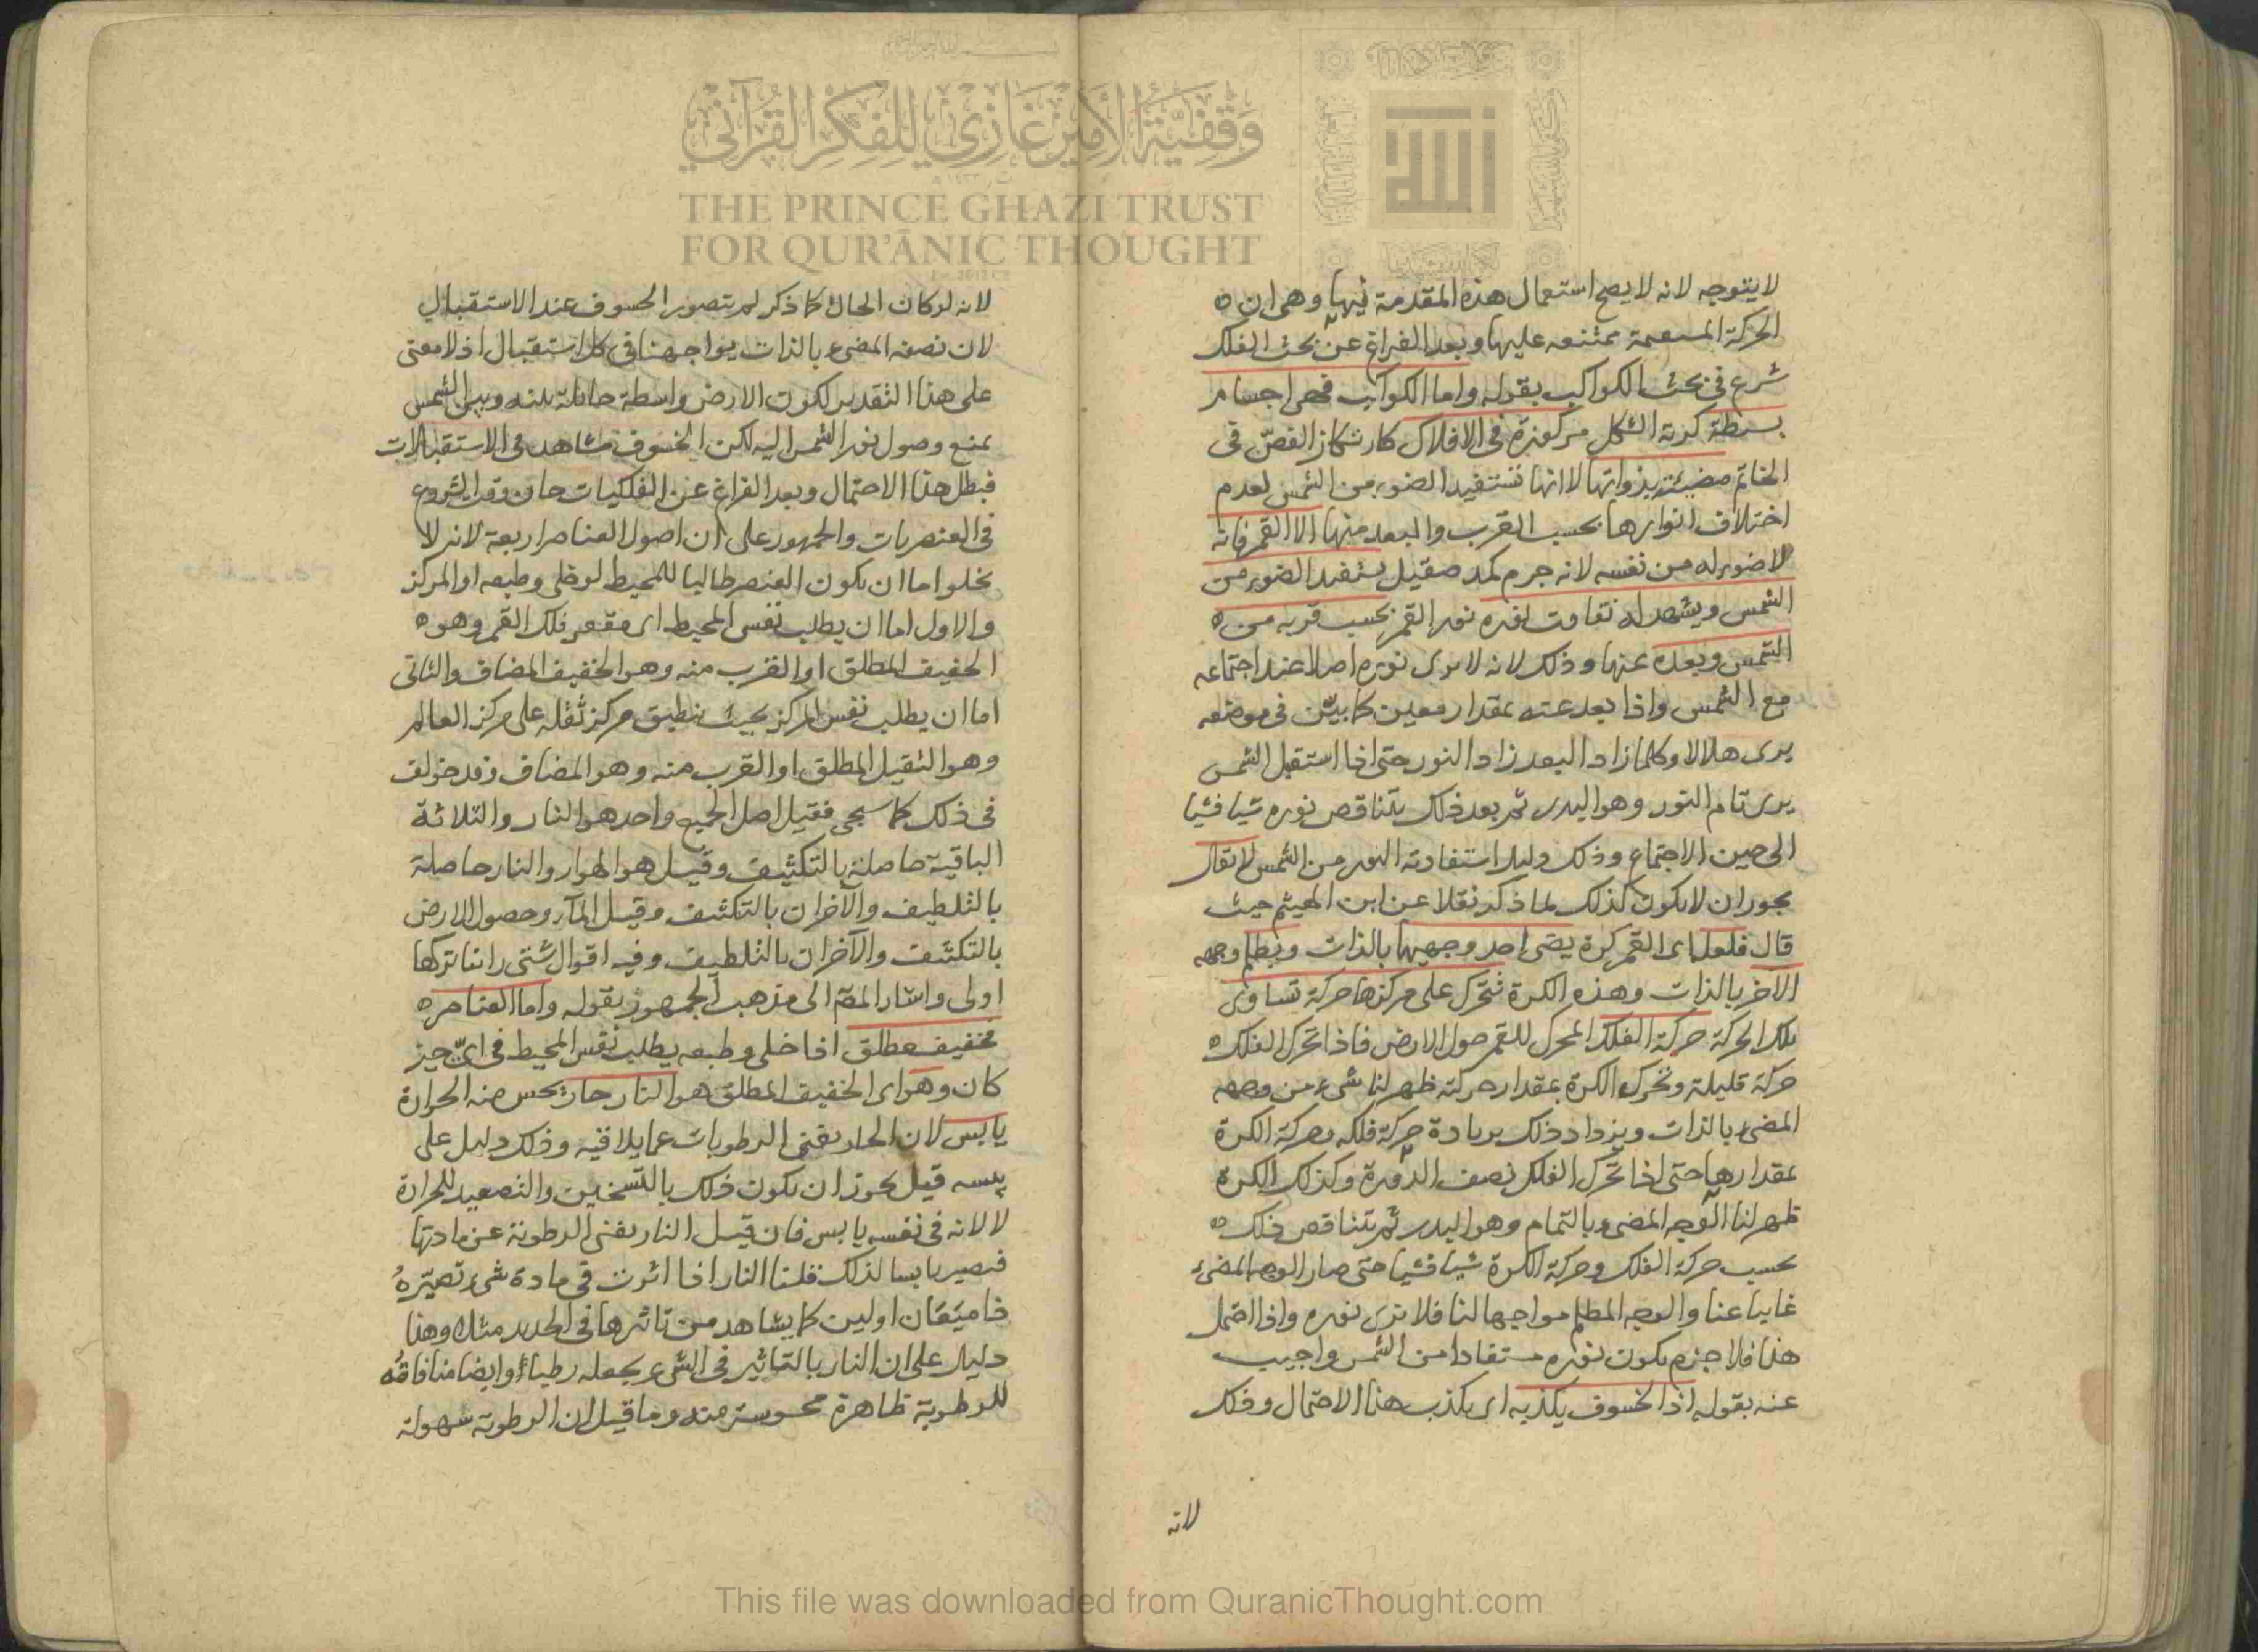 وقفية الأمير غازي للفكر القرآني
THE PRINCE GHAZI TRUST
FOR QUR'ĀNIC THOUGHT
الله
لا يتوجه لانه لا يصح استعمال هذه المقدمة فيها وهى ان
الحركة المستقيمة ممتنعه عليها وبعد الفراغ عن بحث الفلك
شرع فى بحث الكواكب بقوله واما الكواكب فهى اجسام
بسيطة كرية الشكل مركوزة فى الافلاك كارتكاز الفصّ فى
الخاتم مضيئة بذواتها لا انها تستفيد الضوء من الشمس لعدم
اختلاف انوارها بحسب القرب والبعد منها الا القمر فانه
لا ضوء له من نفسه لانه جرم كمد صقيل يستفيد الضوء من
الشمس ويشهد له تفاوت نوره نور القمر بحسب قربه من
الشمس وبعده عنها وذلك لانه لا يرى نوره اصلا عند اجتماعه
مع الشمس واذا بعد عنه بمقدار معين كما بيّن فى موضعه
يرى هلالا وكلما زاد البعد زاد النور حتى اذا استقبل الشمس
يرى تام النور وهو البدر ثم بعد ذلك يتناقص نوره شيا فشيا
الى حين الاجتماع وذلك دليل استفادته النور من الشمس لا يقال
يجوز ان لا يكون كذلك لما ذكر نقلا عن ابن الهيثم حيث
قال فلعل اى القمر كرة يضى احد وجهيها بالذات ويظلم وجهه
الآخر بالذات وهذه الكرة تتحرك على مركزها حركة تساوى
تلك الحركة حركة الفلك المحرك للقمر حول الارض فاذا تحرك الفلك
حركة قليلة وتحرك الكرة بمقدار حركته ظهر لنا شىء من وجهه
المضىء بالذات ويزداد ذلك بزيادة حركة فلكه وحركة الكرة
بمقدارها حتى اذا تحرك الفلك نصف الدورة وكذلك الكرة
ظهر لنا الوجه المضىء بالتمام وهو البدر ثم يتناقص ذلك
بحسب حركة الفلك وحركة الكرة شيا فشيا حتى صار الوجه المضىء
غايبا عنا والوجه المظلم مواجها لنا فلا نرى نوره واذا احتمل
هذا فلا جزم بكون نوره مستفادا من الشمس واجيب
عنه بقوله اذ الخسوف يكذبه اى يكذب هذا الاحتمال وذلك
لانه
لانه لو كان الحال كما ذكر لم يتصور الخسوف عند الاستقبال
لان نصفه المضىء بالذات يواجهنا فى كل استقبال اذ لا معنى
على هذا التقدير لكون الارض واسطة حائلة بينه وبين الشمس
يمنع وصول نور الشمس اليه لكن الخسوف مشاهد فى الاستقبالات
فبطل هذا الاحتمال وبعد الفراغ عن الفلكيات حان وقت الشروع
فى العنصريات والجمهور على ان اصول العناصر اربعة لانه لا
يخلوا اما ان يكون العنصر طالبا للمحيط لو خلى وطبعه او المركز
والاول اما ان يطلب نفس المحيط اى مقعر فلك القمر وهو
الخفيف المطلق او القرب منه وهو الخفيف المضاف والثانى
اما ان يطلب نفس المركز بحيث ينطبق مركز ثقله على مركز العالم
وهو الثقيل المطلق او القرب منه وهو المضاف وقد خولف
فى ذلك كما سيجى فقيل اصل الجميع واحد هو النار والثلاثة
الباقية حاصلة بالتكثيف وقيل هو الهواء والنار حاصلة
بالتلطيف والآخران بالتكثيف وقيل الماء وحصول الارض
بالتكثيف والآخران بالتلطيف وفيه اقوال شتى راينا تركها
اولى واشار المصّ الى مذهب الجمهور بقوله واما العناصر
فخفيف مطلق اذا خلى وطبعه يطلب نفس المحيط فى اىّ حيز
كان وهو اى الخفيف المطلق هو النار حار يحس منه الحرارة
يابس لان الحار يفنى الرطوبات عما يلاقيه وذلك دليل على
يبسه قيل يجوز ان يكون ذلك بالتسخين والتصعيد للحرارة
لا لانه فى نفسه يابس فان قيل النار يفنى الرطوبة عن مادتها
فيصير يابسا لذلك قلنا النار اذا اثرت فى مادة شىء تصيّرهُ
ذا ميعان اولين كما يشاهد من تاثيرها فى الحديد مثلا وهذا
دليل على ان النار بالتاثير فى الشىء يجعله رطبا وايضا منافاته
للرطوبة ظاهرة محسوسة منه وما قيل ان الرطوبة سهولة
This file was downloaded from QuranicThought.com